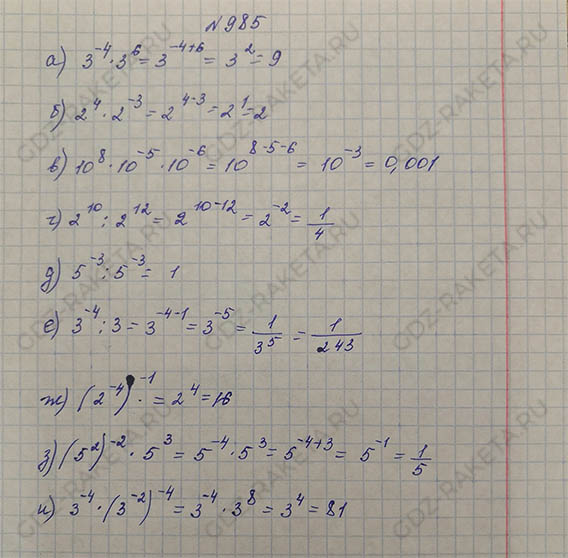 №985
а) 3⁻⁴·3⁶ = 3⁻⁴⁺⁶ = 3² = 9
б) 2⁴·2⁻³ = 2⁴⁻³ = 2¹ = 2
в) 10⁸·10⁻⁵·10⁻⁶ = 10⁸⁻⁵⁻⁶ = 10⁻³ = 0,001
г) 2¹⁰ : 2¹² = 2¹⁰⁻¹² = 2⁻² = 1/4
д) 5⁻³ : 5⁻³ = 1
е) 3⁻⁴ : 3 = 3⁻⁴⁻¹ = 3⁻⁵ = 1/3⁵ = 1/243
ж) (2⁻⁴)⁻¹ = 2⁴ = 16
з) (5²)⁻²·5³ = 5⁻⁴·5³ = 5⁻⁴⁺³ = 5⁻¹ = 1/5
и) 3⁻⁴·(3⁻²)⁻⁴ = 3⁻⁴·3⁸ = 3⁴ = 81
GDZ-RAKETA.RU